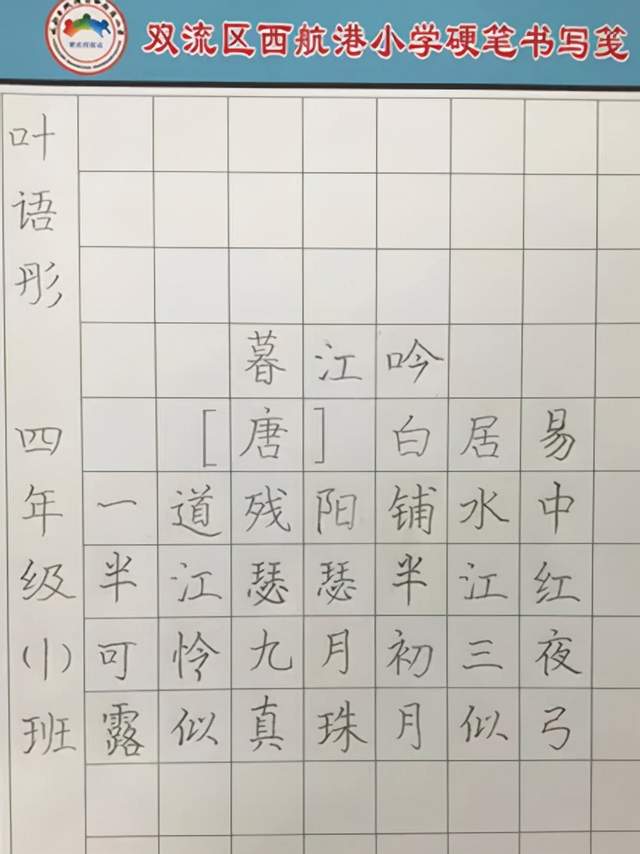 双流区西航港小学硬笔书写笺
叶语彤
四年级(1)班
暮江吟
[唐]白居易
一道残阳铺水中
半江瑟瑟半江红
可怜九月初三夜
露似真珠月似弓